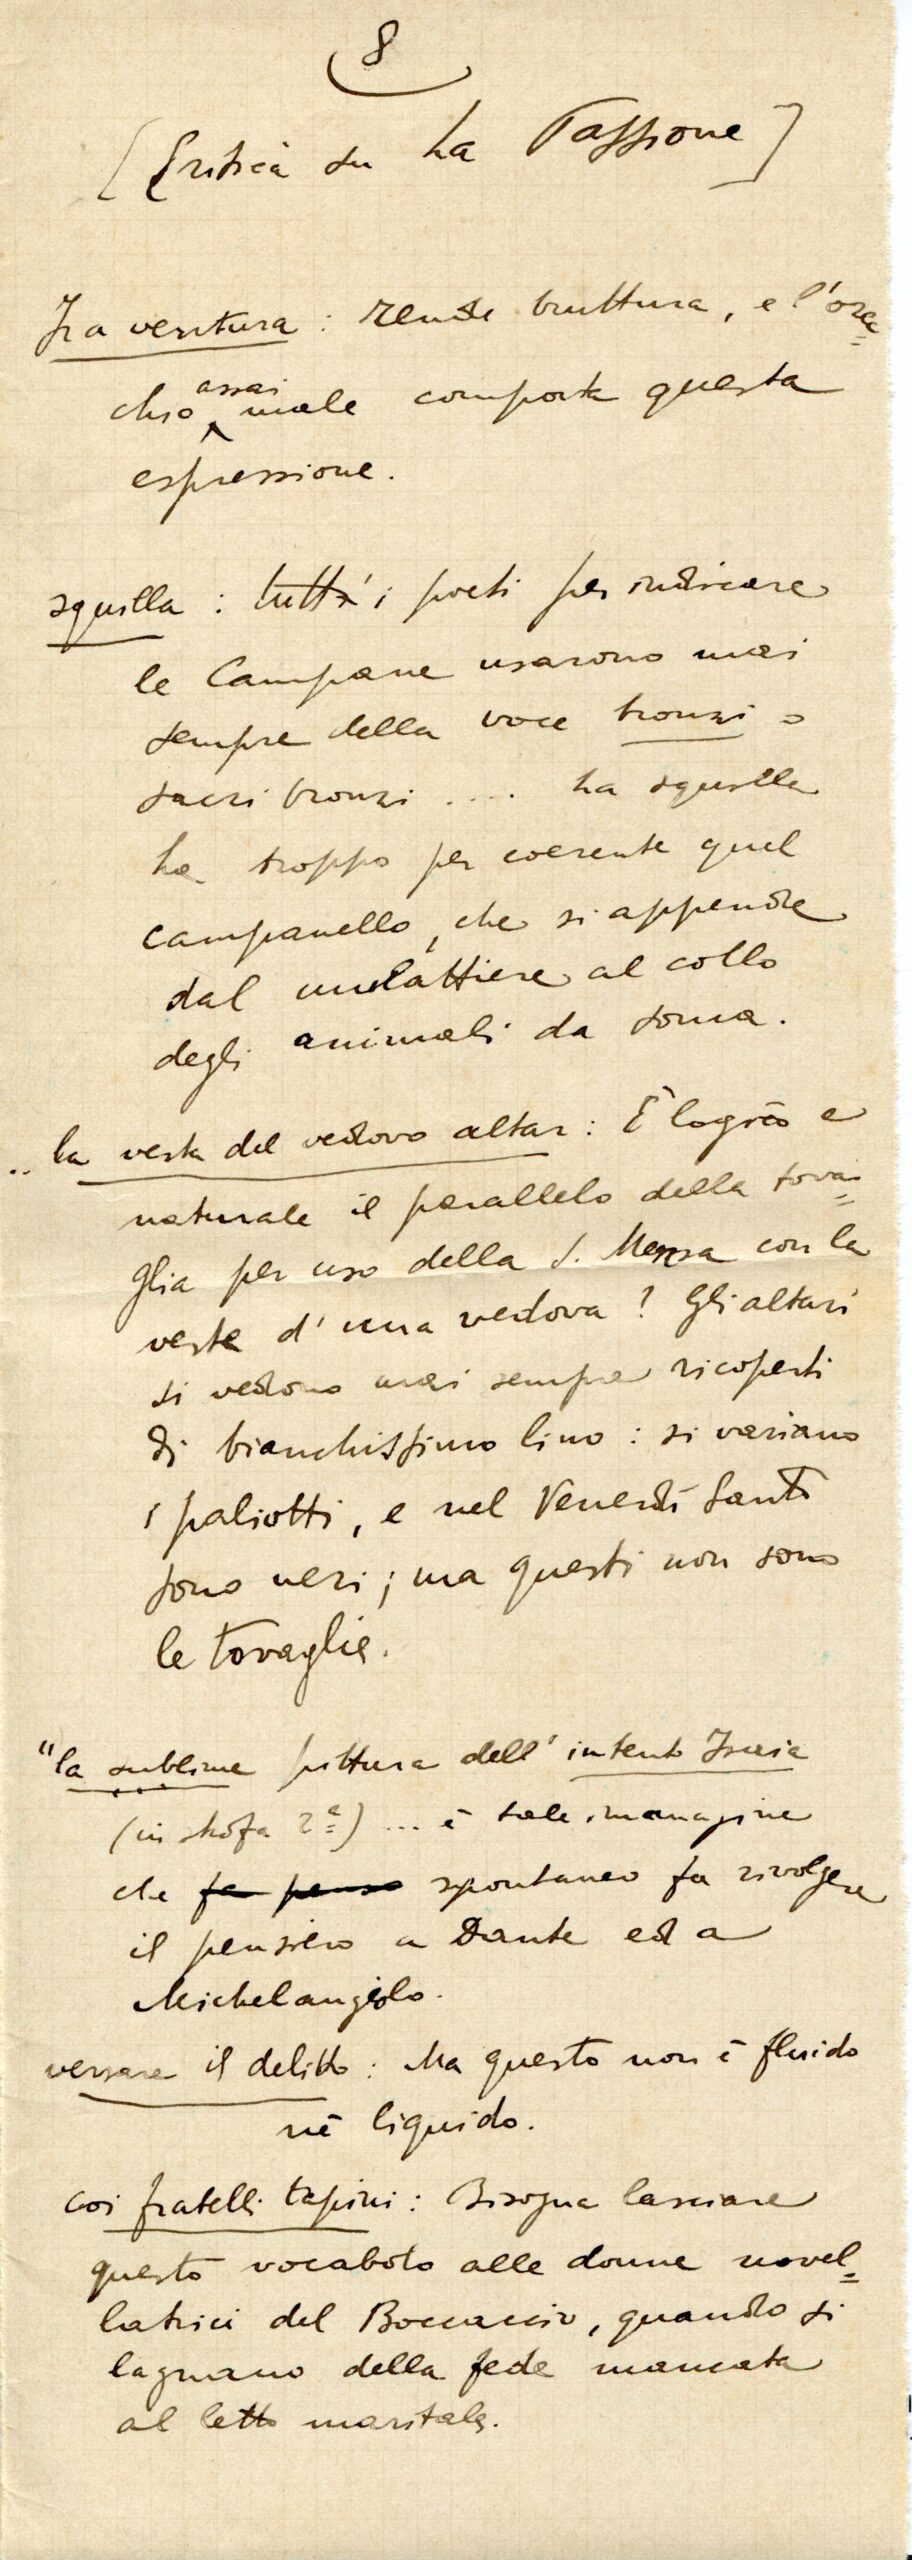 8
[Critica su La Passione]
Fra ventura : rende bruttura, e l'orec=
chio assai male comporta questa
espressione.
squilla : tutt' i poeti per indicare
le Campane usarono mai
sempre della voce bronzi o
sacri bronzi .... La squilla
ha troppo per coerente quel
campanello, che si appende
dal mulattiere al collo
degli animali da soma.
.. la vesta del vedovo altar : È logico e
naturale il parallelo della tova=
glia per uso della S. Mensa con la
veste d' una vedova ? Gli altari
si vedono mai sempre ricoperti
di bianchissimo lino : si variano
i paliotti, e nel Venerdì Santo
sono neri ; ma questi non sono
le tovaglie.
"la sublime pittura dell' intento Isaia
(in strofa 2ª) ... è tale immagine
che fa penso spontaneo fa rivolgere
il pensiero a Dante ed a
Michelangiolo.
versare il delitto : Ma questo non è fluido
nè liquido.
coi fratelli tapini : Bisogna lasciare
questo vocabolo alle donne novel=
latrici del Boccaccio, quando si
lagnano della fede mancata
al letto maritale.